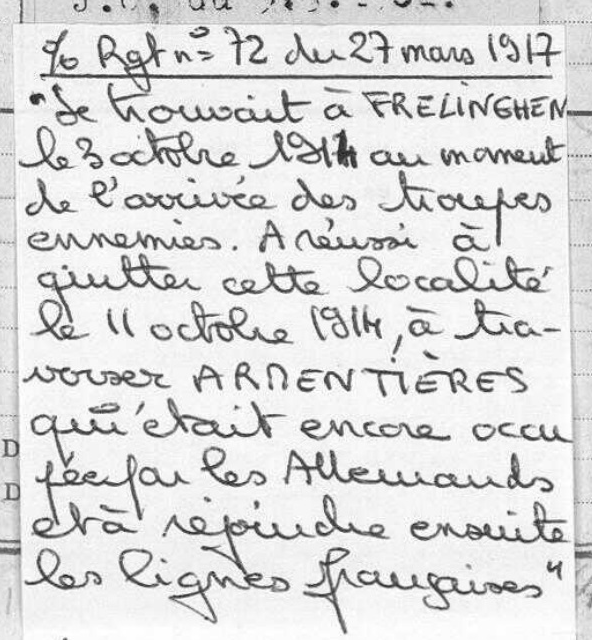 % Rgt n° 72 du 27 mars 1917
"Se trouvait à FRELINGHEN
le 3 octobre 1914 au moment
de l'arrivée des troupes
ennemies. A réussi à
quitter cette localité
le 11 octobre 1914, à tra-
verser ARMENTIÈRES
qui était encore occu
pée par les Allemands
et à rejoindre ensuite
les lignes françaises"
D
D